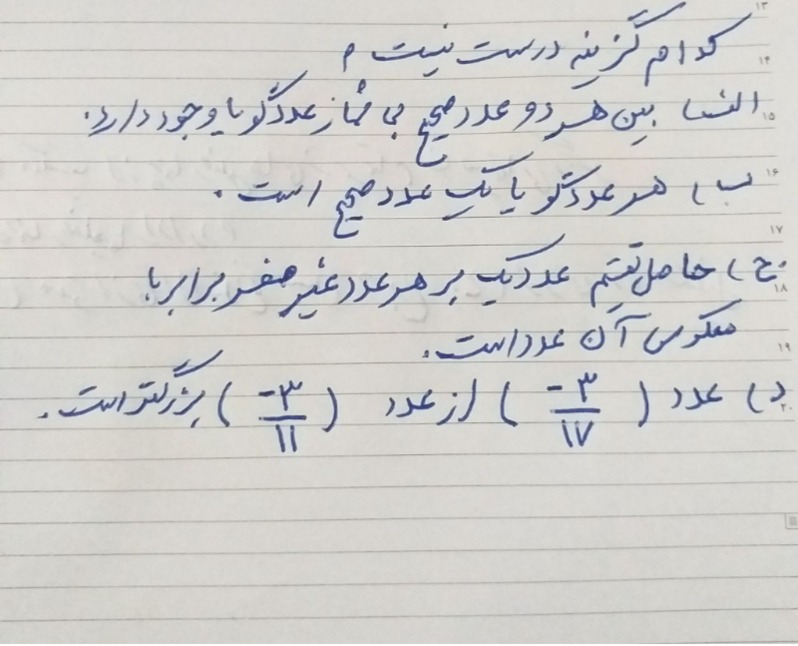 کدام گزینه درست نیست ؟
الف) بین هر دو عدد صحیح بی شمار عدد گویا وجود دارد.
ب) هر عدد گویا یک عدد صحیح است.
ج) حاصل تقسیم عدد یک بر هر عدد غیر صفر برابر با
معکوس آن عدد است.
د) عدد (-۳/۱۷) از عدد (-۳/۱۱) بزرگتر است.
۱۳
۱۴
۱۵
۱۶
۱۷
۱۸
۱۹
۲۰